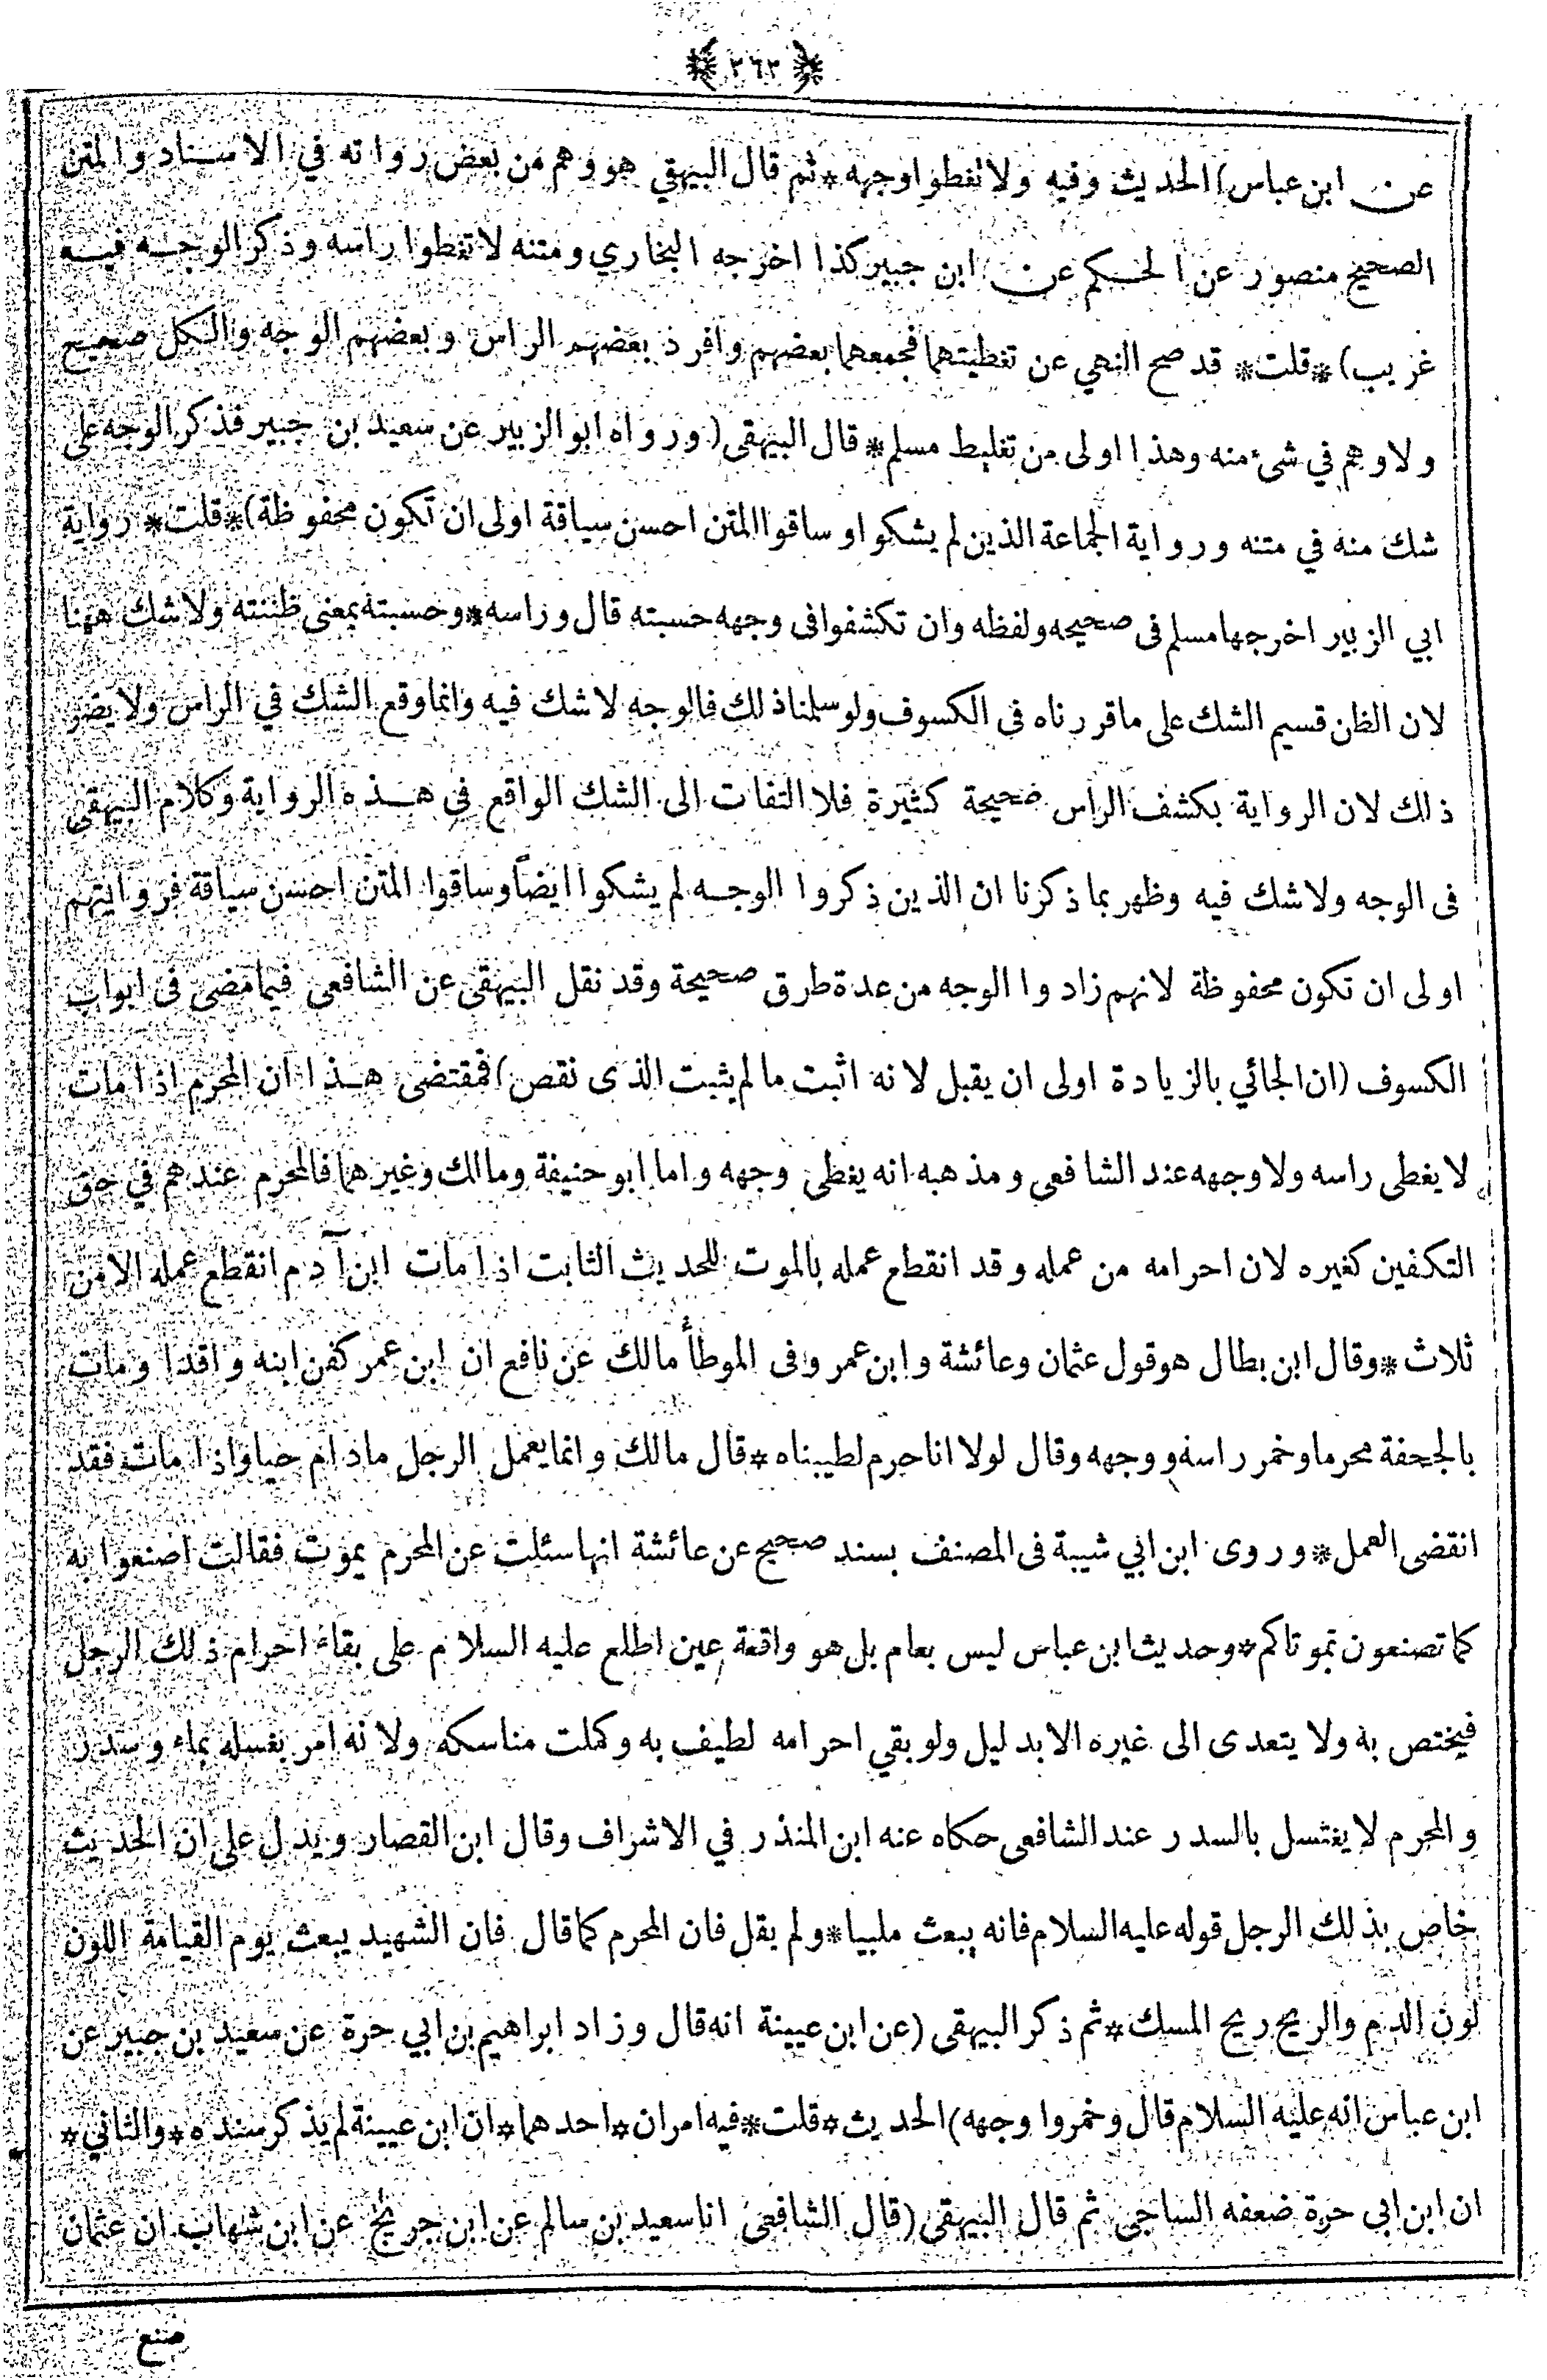 ﴿ ٢٦٣ ﴾
عن ابن عباس) الحديث وفيه ولا تغطوا وجهه * ثم قال البيهقي هو وهم من بعض رواته في الاسناد والمتن
الصحيح منصور عن الحكم عن ابن جبير كذا اخرجه البخاري ومتنه لا تغطوا راسه وذكر الوجه فيه
غريب) * قلت * قد صح النهي عن تغطيتهما فجمعهما بعضهم وافرد بعضهم الراس وبعضهم الوجه والكل صحيح
ولا وهم في شىء منه وهذا اولى من تغليط مسلم * قال البيهقى (ورواه ابو الزبير عن سعيد بن جبير فذكر الوجه على
شك منه في متنه ورواية الجماعة الذين لم يشكوا وساقوا المتن احسن سياقة اولى ان تكون محفوظة) * قلت * رواية
ابي الزبير اخرجها مسلم فى صحيحه ولفظه وان تكشفوا فى وجهه حسبته قال وراسه * وحسبته بمعنى ظننته ولا شك ههنا
لان الظن قسيم الشك على ما قررناه فى الكسوف ولو سلمنا ذلك فالوجه لا شك فيه وانما وقع الشك في الراس ولا يضر
ذلك لان الرواية بكشف الراس صحيحة كثيرة فلا التفات الى الشك الواقع فى هذه الرواية وكلام البيهقى
فى الوجه ولا شك فيه وظهر بما ذكرنا ان الذين ذكروا الوجه لم يشكوا ايضاً وساقوا المتن احسن سياقة فروايتهم
اولى ان تكون محفوظة لانهم زادوا الوجه من عدة طرق صحيحة وقد نقل البيهقى عن الشافعى فيما مضى فى ابواب
الكسوف (ان الجائي بالزيادة اولى ان يقبل لانه اثبت ما لم يثبت الذى نقص) فمقتضى هذا ان المحرم اذا مات
لا يغطى راسه ولا وجهه عند الشافعى ومذهبه انه يغطى وجهه واما ابو حنيفة ومالك وغيرهما فالمحرم عندهم في حق
التكفين كغيره لان احرامه من عمله وقد انقطع عمله بالموت للحديث الثابت اذا مات ابن آدم انقطع عمله الا من
ثلاث * وقال ابن بطال هو قول عثمان وعائشة وابن عمر وفى الموطأ مالك عن نافع ان ابن عمر كفن ابنه واقدا ومات
بالجحفة محرما وخمر راسه ووجهه وقال لولا انا حرم لطيبناه * قال مالك وانما يعمل الرجل ما دام حيا واذا مات فقد
انقضى العمل * وروى ابن ابي شيبة فى المصنف بسند صحيح عن عائشة انها سئلت عن المحرم يموت فقالت اصنعوا به
كما تصنعون بموتاكم * وحديث ابن عباس ليس بعام بل هو واقعة عين اطلع عليه السلام على بقاء احرام ذلك الرجل
فيختص به ولا يتعدى الى غيره الا بدليل ولو بقي احرامه لطيف به وكملت مناسكه ولانه امر بغسله بماء وسدر
والمحرم لا يغتسل بالسدر عند الشافعى حكاه عنه ابن المنذر في الاشراف وقال ابن القصار ويدل على ان الحديث
خاص بذلك الرجل قوله عليه السلام فانه يبعث ملبيا * ولم يقل فان المحرم كما قال فان الشهيد يبعث يوم القيامة اللون
لون الدم والريح ريح المسك * ثم ذكر البيهقى (عن ابن عيينة انه قال وزاد ابراهيم بن ابي حرة عن سعيد بن جبير عن
ابن عباس انه عليه السلام قال وخمروا وجهه) الحديث * قلت * فيه امران * احدهما * ان ابن عيينة لم يذكر سنده * والثاني *
ان ابن ابى حرة ضعفه الساجى ثم قال البيهقى (قال الشافعى انا سعيد بن سالم عن ابن جريج عن ابن شهاب ان عثمان
صنع